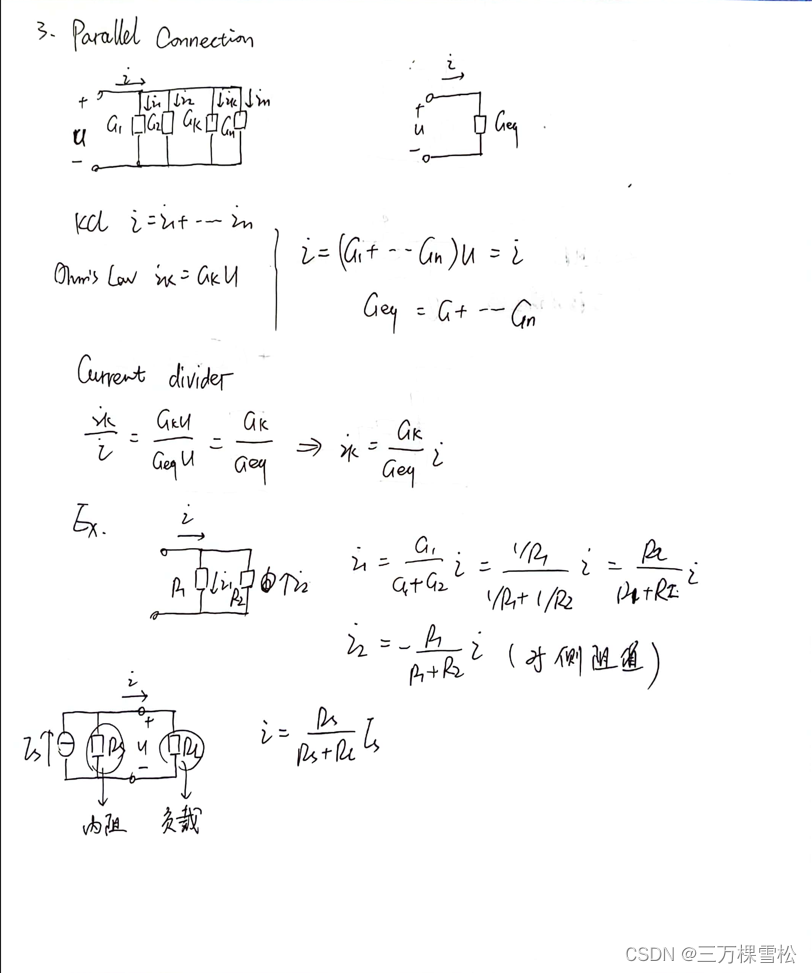 3. Parallel Connection
i i
+ i1 i2 ik in +
u G1 G2 GK Gn u Geq
- -
KCL i = i1 + ··· in
i = (G1 + ··· Gn)u = i
Ohm's Law ik = GKU
Geq = G + ··· Gn
Current divider
ik/i = GKU/GeqU = GK/Geq ⇒ ik = GK/Geq i
Ex.
i
R1 i1 R2 i2
i1 = G1/(G1+G2) i = (1/R1)/(1/R1 + 1/R2) i = R2/(R1+R2) i
i2 = - R1/(R1+R2) i (对侧阻值)
i
+
Is Rs u RL
-
i = Rs/(Rs+RL) Is
内阻 负载
CSDN @三万棵雪松